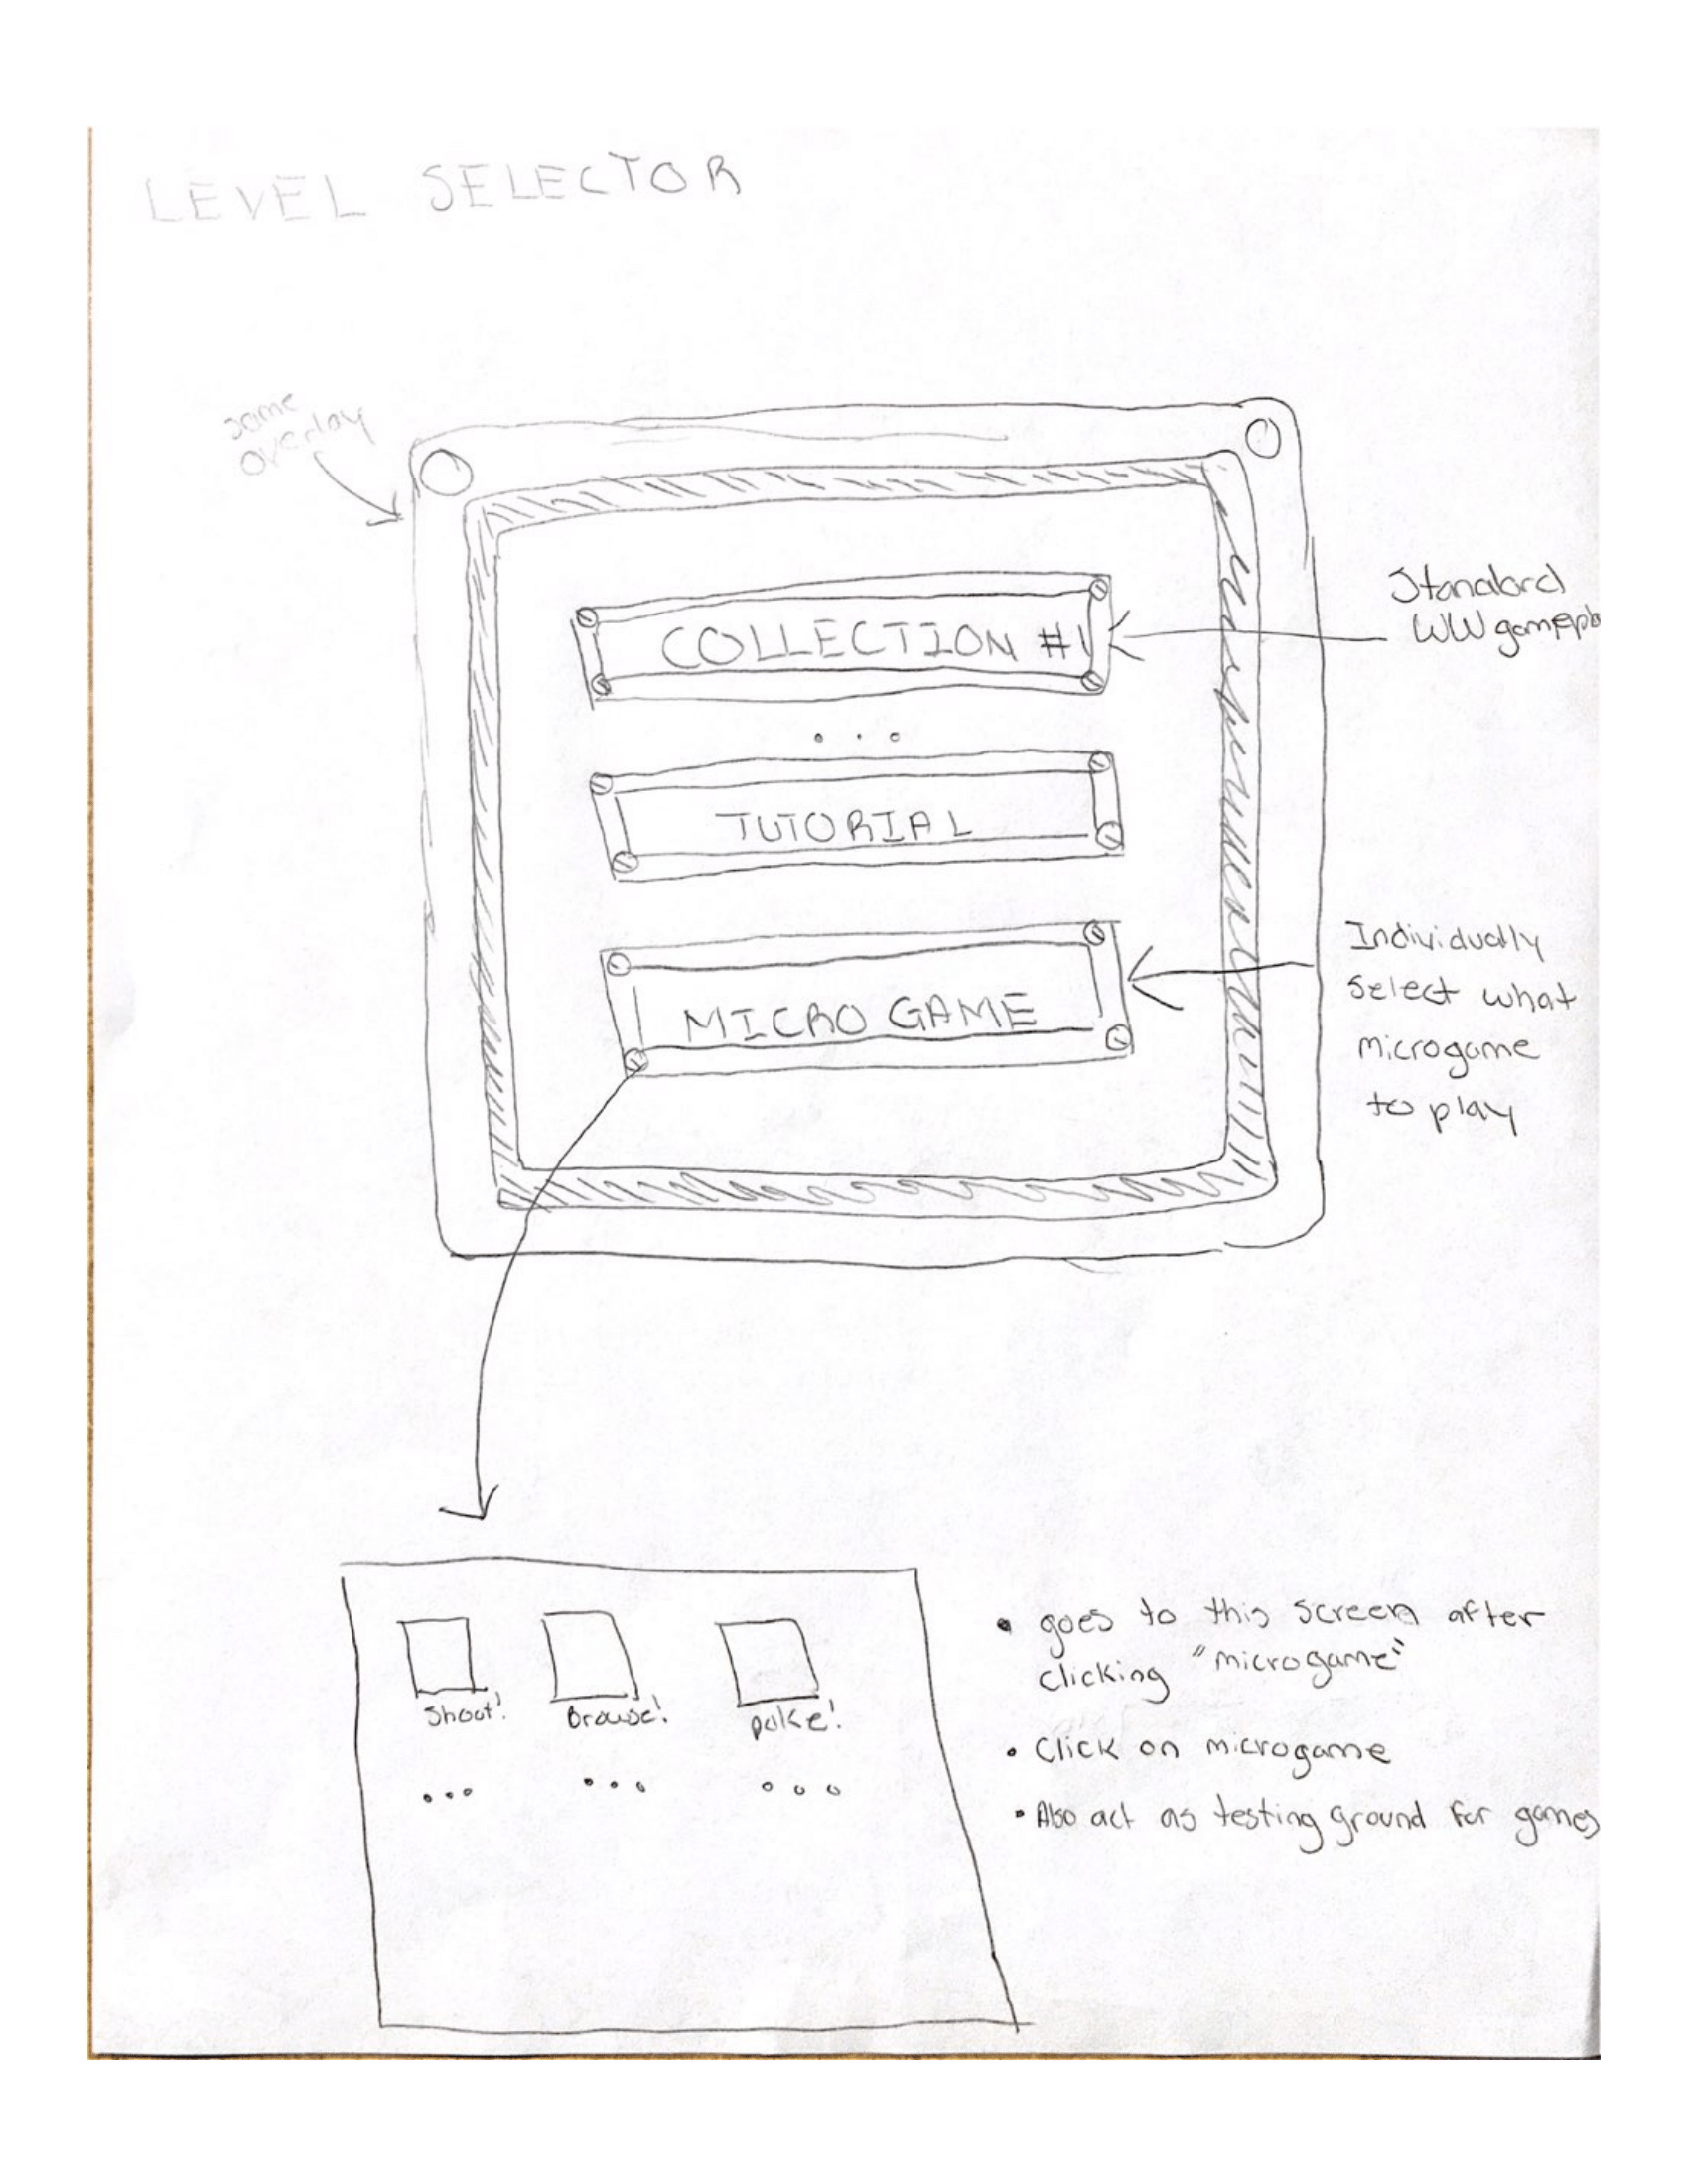 LEVEL SELECTOR
same
overlay
COLLECTION #1
Standard
WW gamepla
...
TUTORIAL
MICRO GAME
Individually
select what
microgame
to play
Shoot!
Browse!
poke!
...
...
...
• goes to this screen after
clicking "microgame"
• Click on microgame
• Also act as testing ground for games